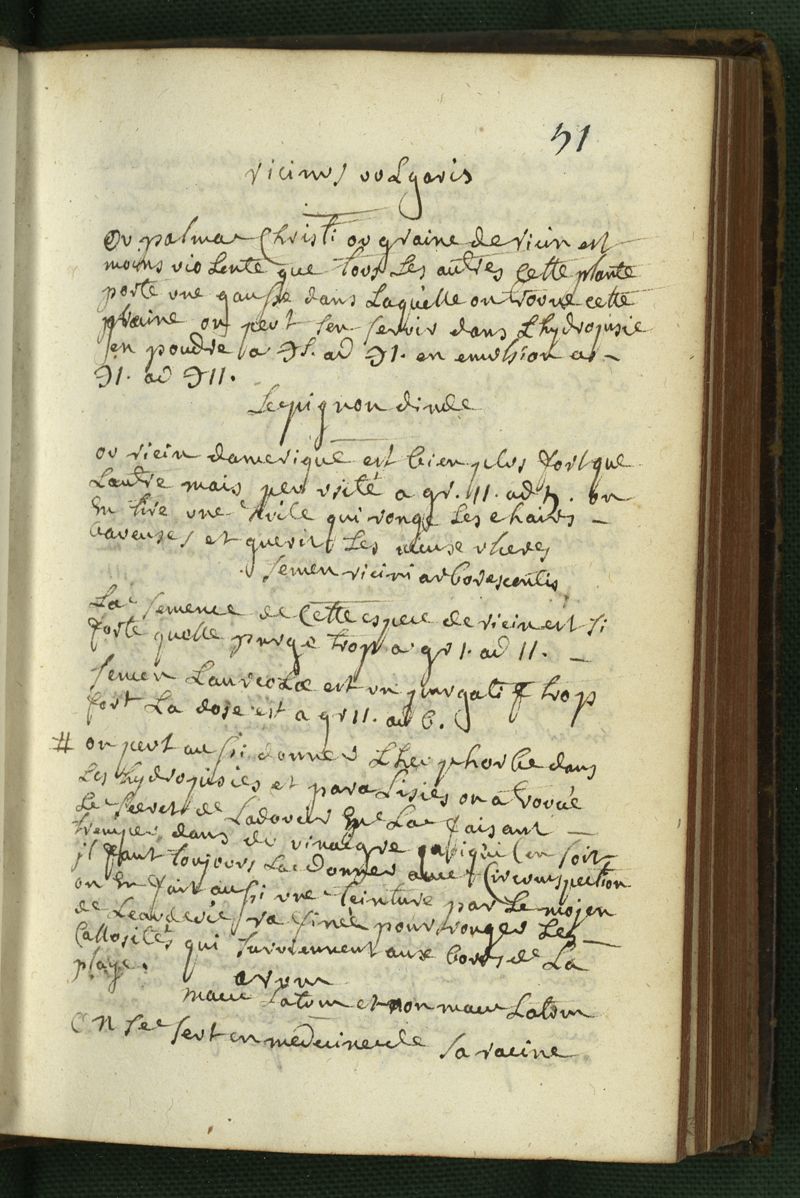 51
ricinus vulgaris
ou palma Christi ou graine de ricin est
moins violente que tous Les autres Cette plante
porte une gausse dans Laquelle on trouve cette
graine on peut sen servir dans Lhydropisie
en poudre a ℈s. ad ℈1. en emulsion a
℈1. ad ℈11.
Le pignon dinde
ou ricin damerique est bien plus fort que
Lautre mais peu usité a gr. 11. ad 5. on
En tire une huile qui ronge Les chairs
baveuses et guerit Les vieux ulceres
semen ricini arborescentis
La semence de Cette espece de ricin est si
forte quelle purge trop a gr 1. ad 11.
semen Laureolæ est un purgatif trop
fort La dose est a gr 11. ad 6.
# on peut aussi donner Lheuphorbe dans
Les hydropisies et paralisies on a trouvé
Le secret de Ladoucir En La faisant
tremper dans du vinaigre quoiqu'il en soit
il faut toujours La donner avec Circonspection
on En fait aussi une teinture par Le mojen
de Leaudevie rafinée pour ronger Les
Callosités qui surviennent aux bors de La
playe.
arum
maculatum et non maculatum
ON se sert en medecine de sa racine